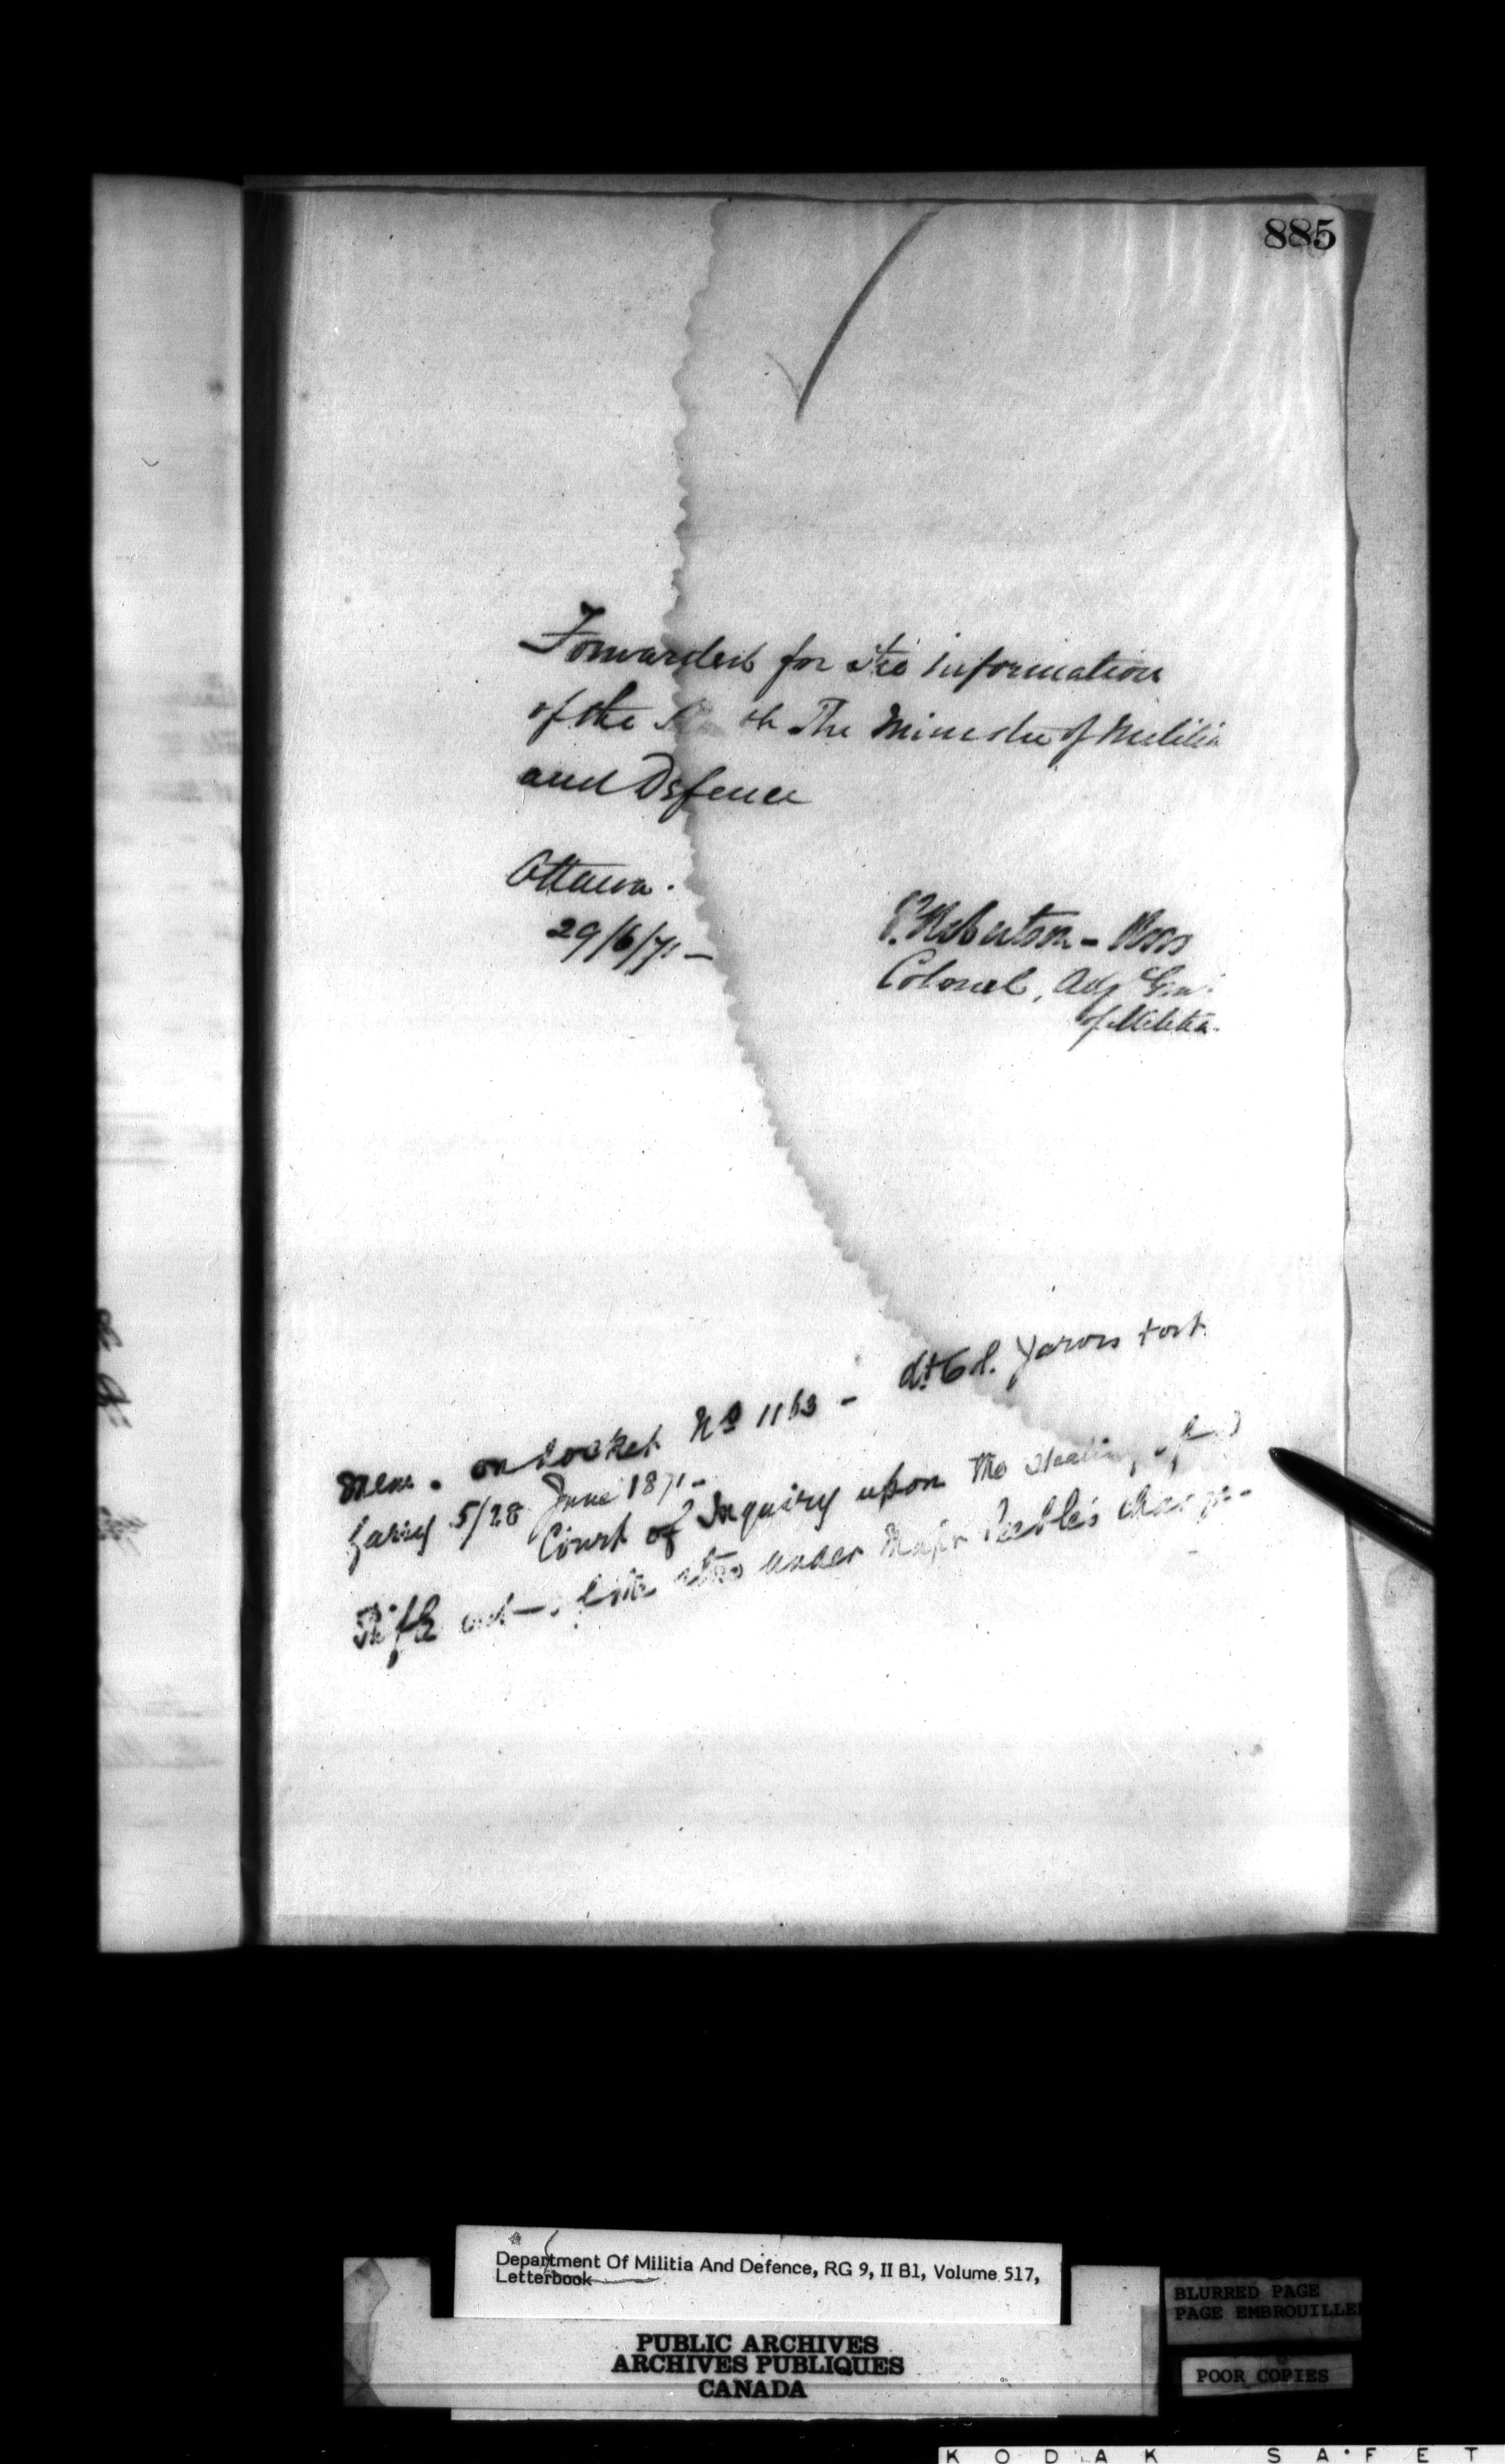 885
Forwarded for the information
of the The Minister of Militia
and Defence
Ottawa.
29/6/71 —
P. Robertson - Ross
Colonel, Adj Genl
of Militia.
Mem. on docket No 1163 - Lt Col. Jarvis Fort
Garry 5/28 June 1871 -
Court of Inquiry upon the stealing of a
Rifle under Major Peebles charge -
Department Of Militia And Defence, RG 9, II B1, Volume 517,
Letterbook
PUBLIC ARCHIVES
ARCHIVES PUBLIQUES
CANADA
BLURRED PAGE
PAGE EMBROUILLE
POOR COPIES
KODAK SAFET